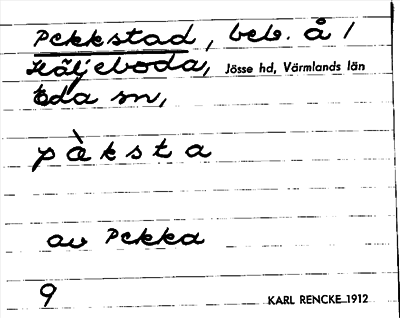 Pekkstad, beb. å /
Häljeboda, Jösse hd, Värmlands län
Eda sn,
pàksta
av Pekka
9 KARL RENCKE 1912